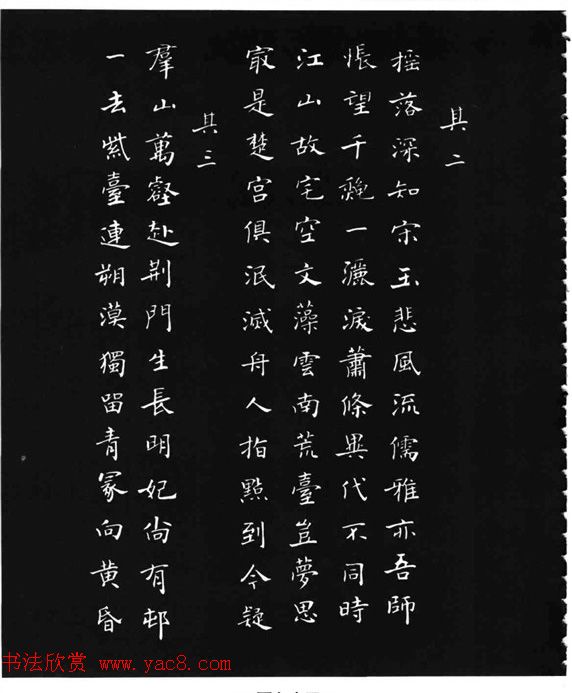 其二
搖落深知宋玉悲風流儒雅亦吾師
悵望千穐一灑淚蕭條異代不同時
江山故宅空文藻雲南荒臺豈夢思
冣是楚宮俱泯滅舟人指點到今疑
其三
羣山萬壑赴荆門生長明妃尚有邨
一去紫臺連朔漠獨留青冢向黄昏
书法欣赏 www.yac8.com